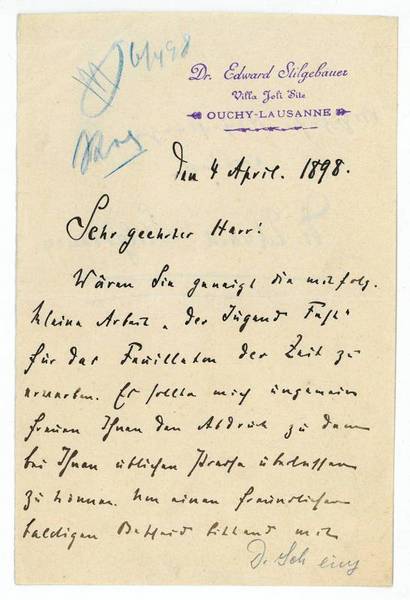 6/4 98
Dr. Edward Stilgebauer
Villa Joli Site
OUCHY-LAUSANNE
Den 4 April. 1898.
Sehr geehrter Herr!
Wären Sie geneigt die mitfolg.
kleine Arbeit „Der Jugend Fest"
für das Feuilleton der Zeit zu
erwerben. Es sollte mich ungemein
freuen Ihnen den Abdruck zu dem
bei Ihnen üblichen Preise überlassen
zu können. Um einen freundlichen
baldigen Bescheid bittend mit